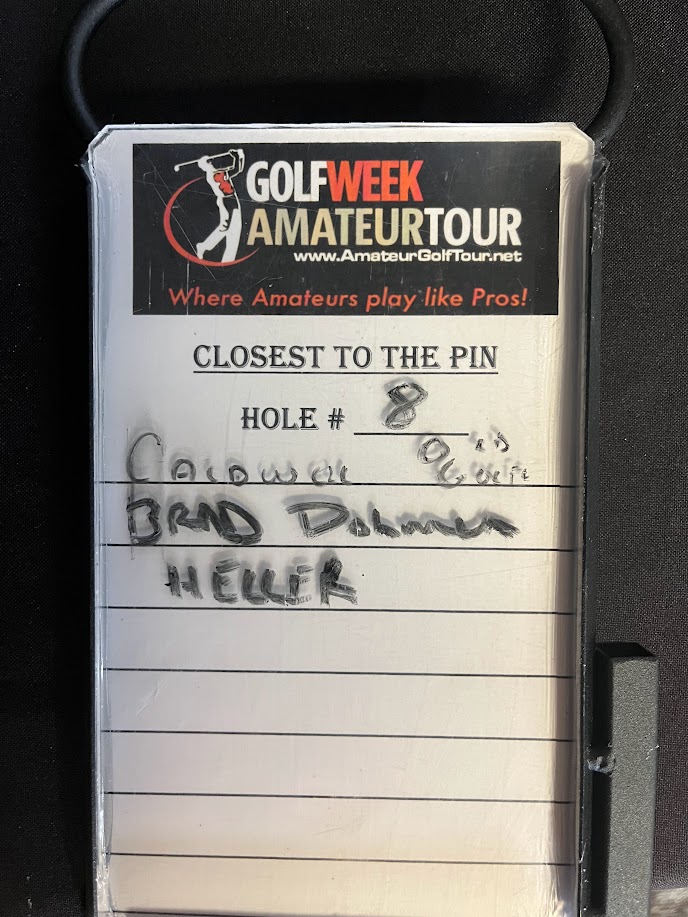 GOLFWEEK
AMATEURTOUR
www.AmateurGolfTour.net
Where Amateurs play like Pros!
CLOSEST TO THE PIN
HOLE # 8
CALDWELL
BRAD Dohmen
HELLER